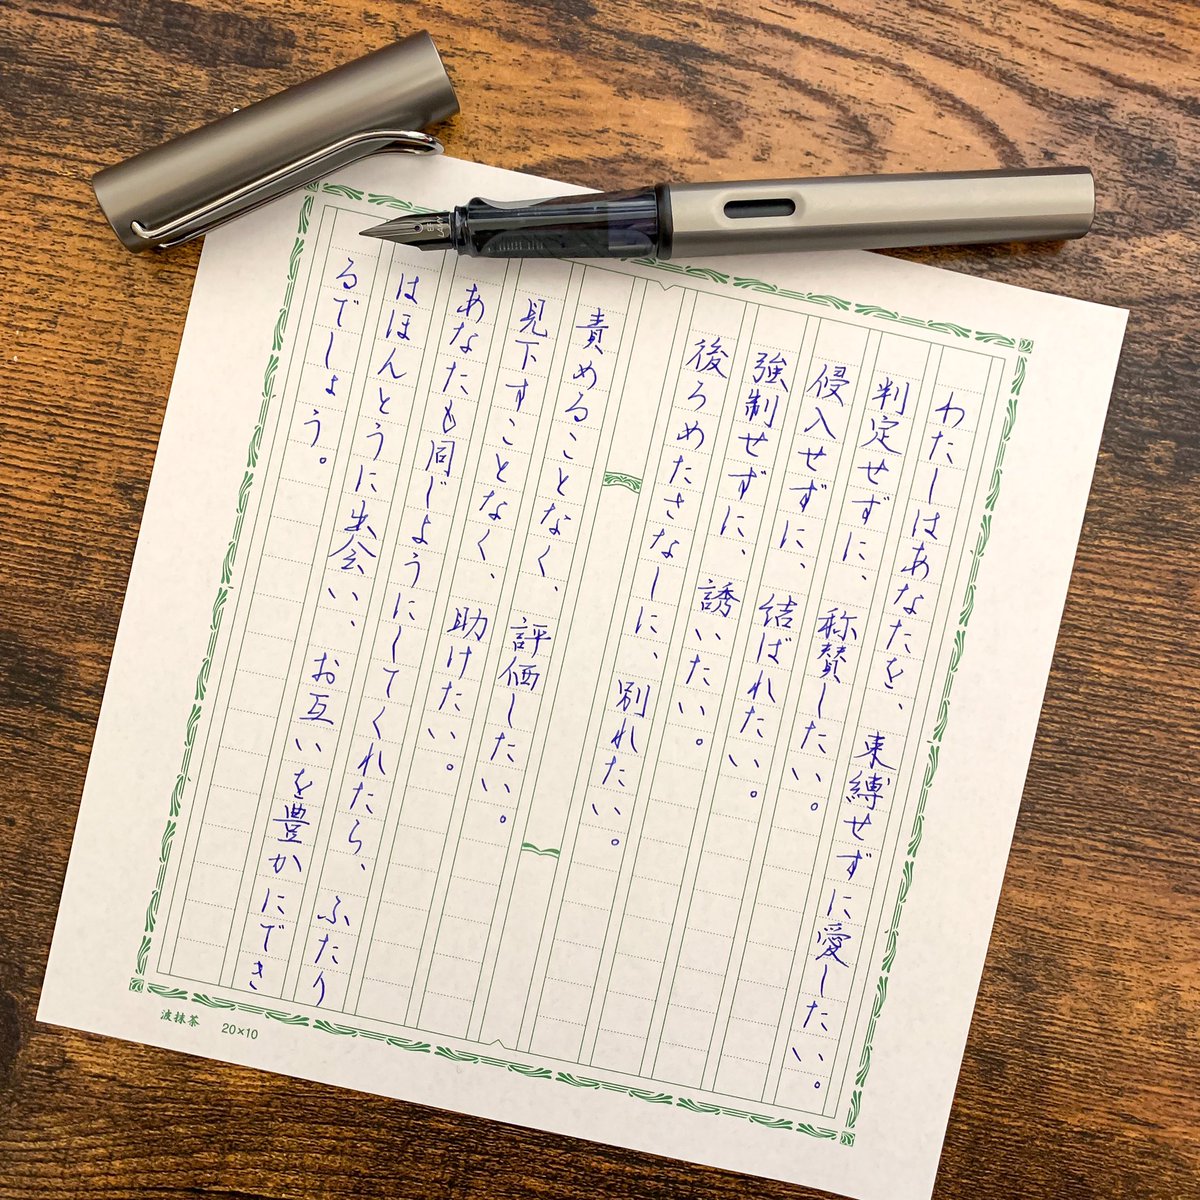 わたしはあなたを、束縛せずに愛したい。
判定せずに、称賛したい。
侵入せずに、結ばれたい。
強制せずに、誘いたい。
後ろめたさなしに、別れたい。
責めることなく、評価したい。
見下すことなく、助けたい。
あなたも同じようにしてくれたら、ふたり
はほんとうに出会い、お互いを豊かにでき
るでしょう。
波抹茶 20×10
LAMY